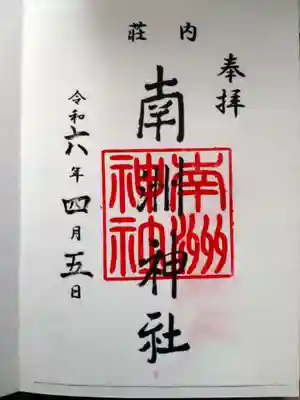 奉拝
荘内
南洲神社
南洲
神社
令和六年四月五日